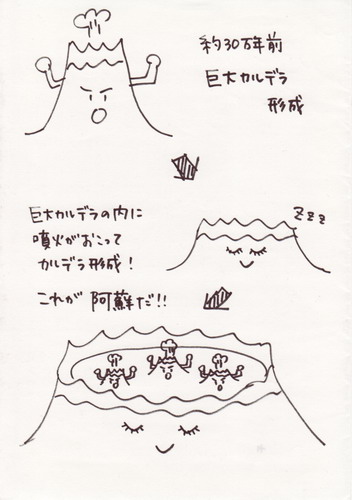 約30万年前
巨大カルデラ
形成
zzz
巨大カルデラの内に
噴火がおこって
カルデラ形成!
これが阿蘇だ!!